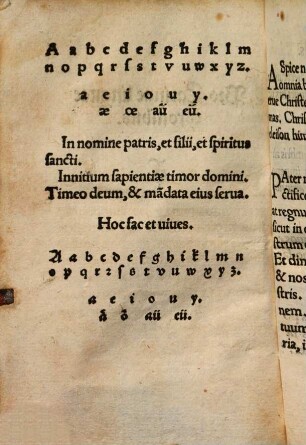 A a b c d e f g h i k l m
n o p q r ſ s t v u w x y z.
a e i o u y.
æ œ aü eü.
In nomine patris, et filii, et ſpiritus
ſancti.
Innitium ſapientiæ timor domini.
Timeo deum, & mãdata eius ſerua.
Hoc fac et uiues.
A a b c d e f g h i k l m n
o p q r ꝛ ſ s t v u w x y z.
a e i o u y.
aü eü.
Spice n
omnia b
Chriſte
mas, Chriſ
PAter n
ctifice
at regnu
ſicut in c
ſtrum
Et dim
& nos
ſtris.
nem.
tuum
ria, i